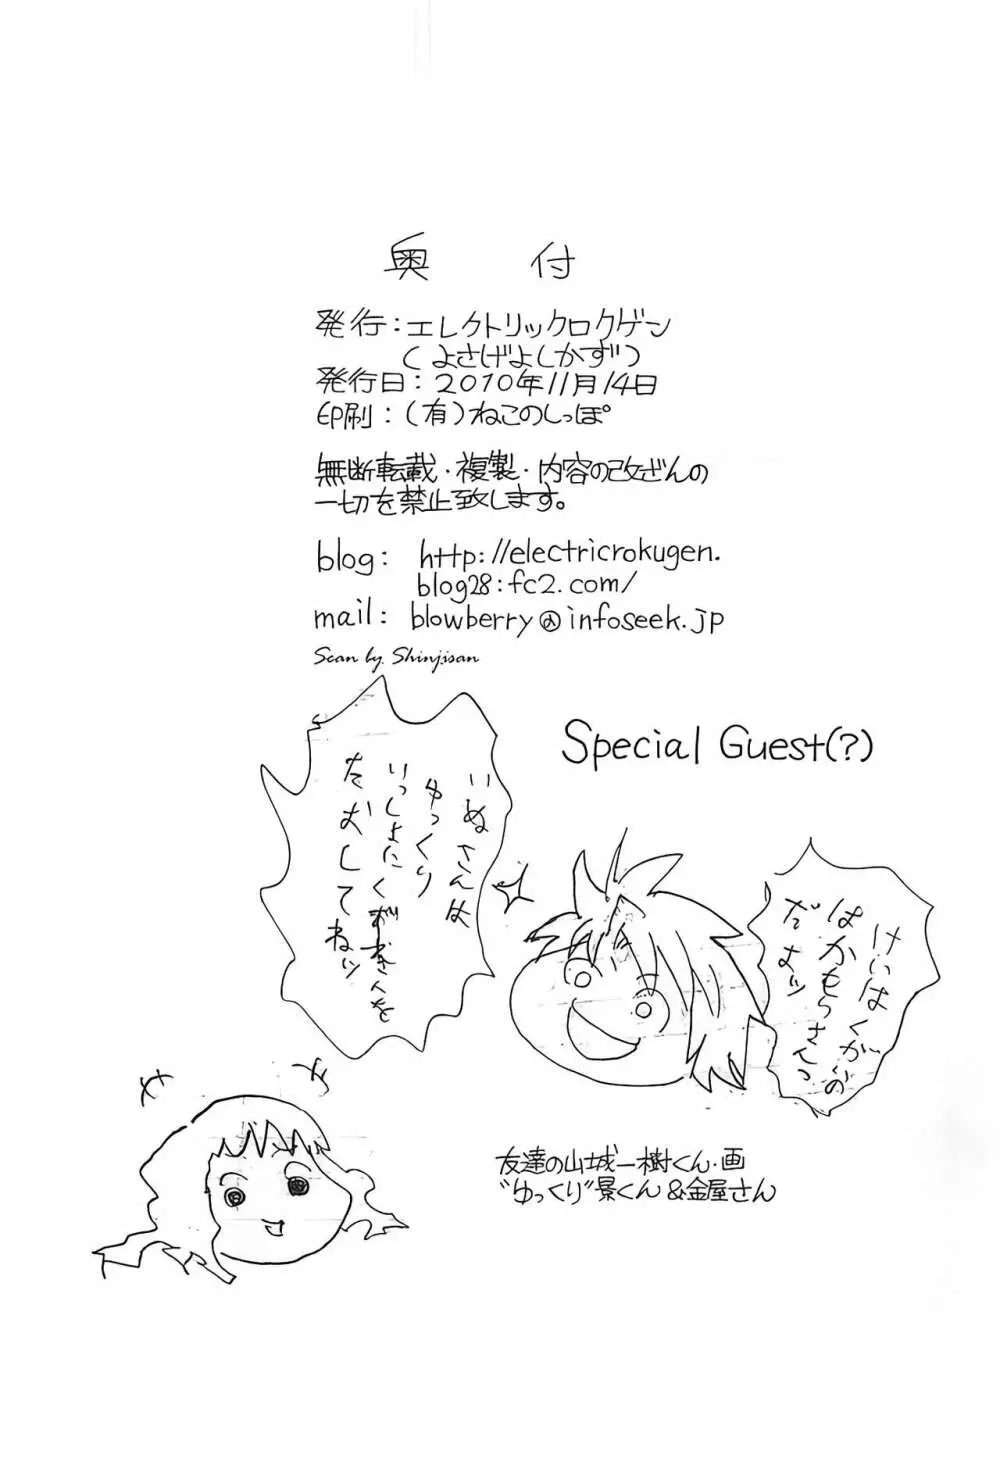 奥付
発行：エレクトリックロクゲン
（よさげよしかず）
発行日：2010年11月14日
印刷：（有）ねこのしっぽ
無断転載・複製・内容の改ざんの
一切を禁止致します。
blog: http://electricrokugen.
blog28.fc2.com/
mail: blowberry@infoseek.jp
Scan by Shinjisan
Special Guest(?)
けいはくがいの
はかもらさんっ
だよッ
いぬさんは
ゆっくり
いっしょにくずきさんを
たおしてねッ
友達の山城一樹くん・画
"ゆっくり"景くん&金屋さん